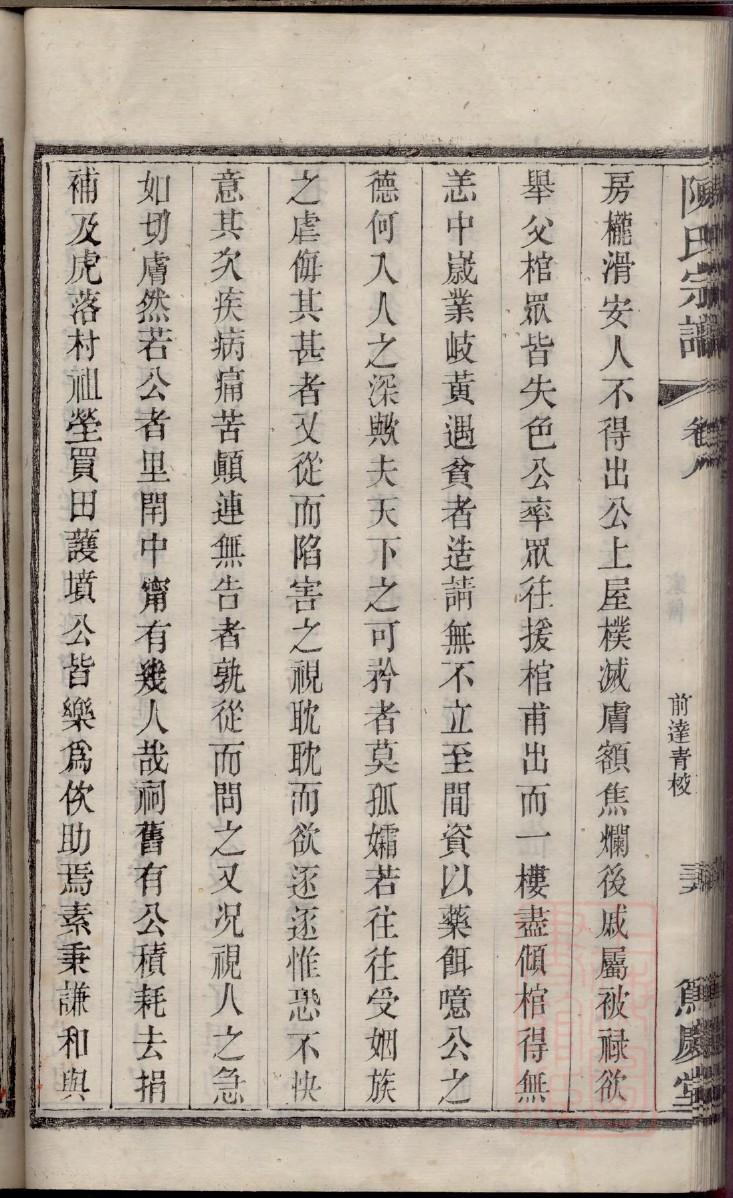 陳氏宗譜
卷八
前達青棱
房櫳滑安人不得出公上屋樸滅膚額焦爛後戚屬被祿欲
舉父棺眾皆失色公率眾往援棺甫出而一樓盡傾棺得無
恙中嵗業岐黃遇貧者造請無不立至間資以藥餌噫公之
德何入人之深歟夫天下之可矜者莫孤孀若往往受姻族
之虐侮其甚者又從而陷害之視耽耽而欲逐逐惟恐不快
意其次疾病痛苦顛連無告者孰從而問之又况視人之急
如切膚然若公者里閈中甯有幾人哉祠舊有公積耗去捐
補及虎落村祖塋買田護墳公皆樂爲佽助焉素秉謙和與